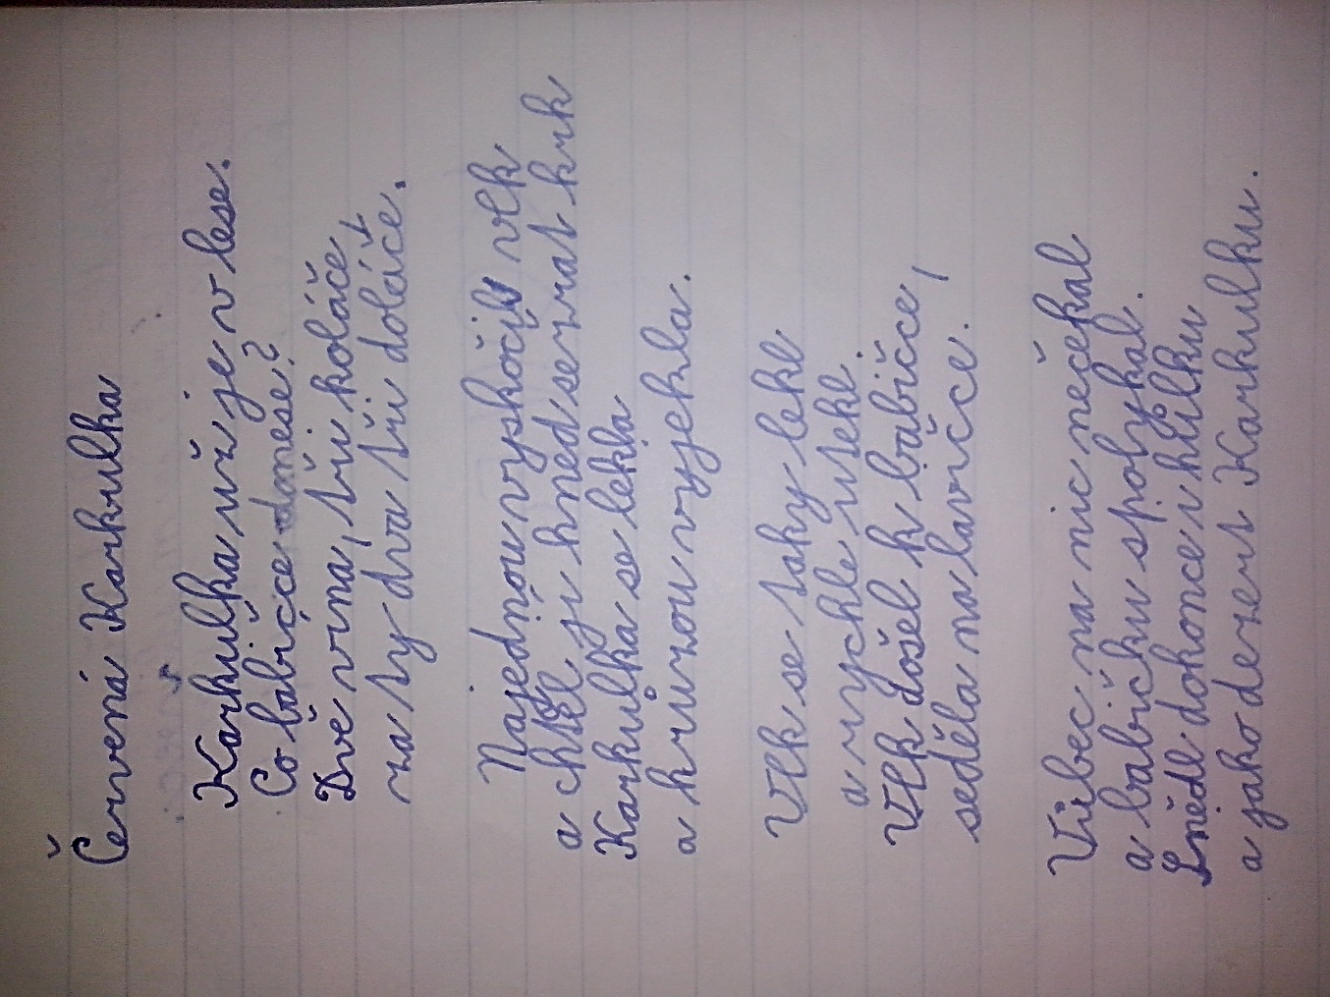 Červená Karkulka
Karkulka už je v lese.
Co babičce donese?
Dvě vína, tři koláče,
za ty dva tři doláče.
Najednou vyskočil vlk
a chtěl ji hned sezrat krk
Karkulka se lekla
a hrůzou vyjekla.
Vlk se taky lekl
a rychle utekl.
Vlk došel k babičce,
seděla na lavičce.
Vůbec na nic nečekal
a babičku spolykal.
Snědl dokonce i hůlku
a jako dezert Karkulku.